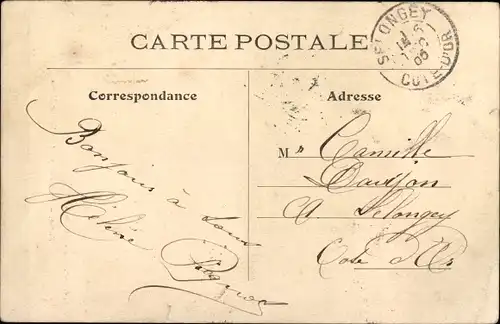 CARTE POSTALE
SELONGEY
COTE-D'OR
05
Correspondance
Bonjour à tous
Hélène
Adresse
Mr Camille
A Selongey
Cote d'Or